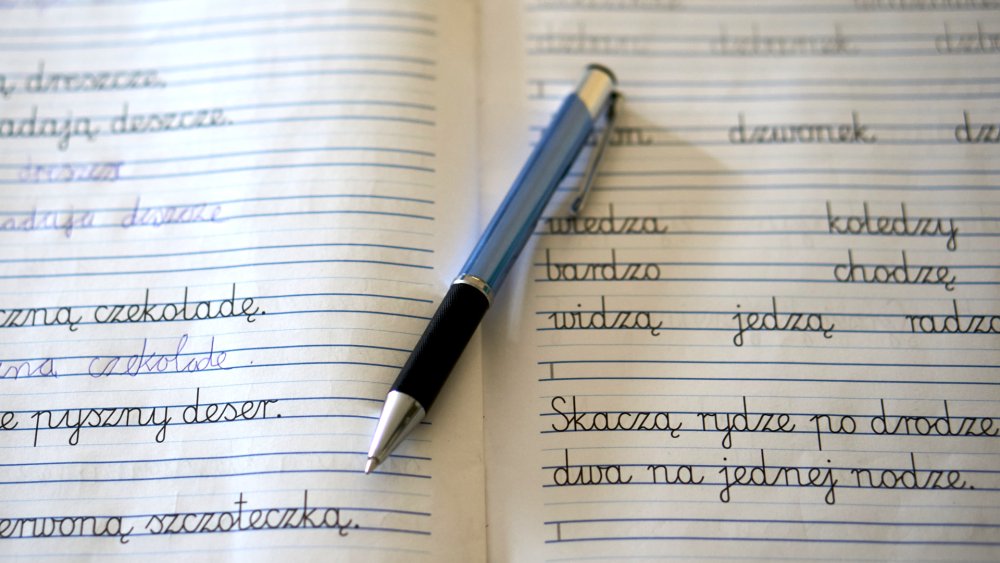 ą dreszcze.
adają deszcze.
adają deszcze
czną czekoladę.
zna czekolade.
e pyszny deser.
erwoną szczoteczką.
dzwonek dz
wiedza koledzy
bardzo chodzę
widzą jedzą radzą
Skaczą rydze po drodze
dwa na jednej nodze.